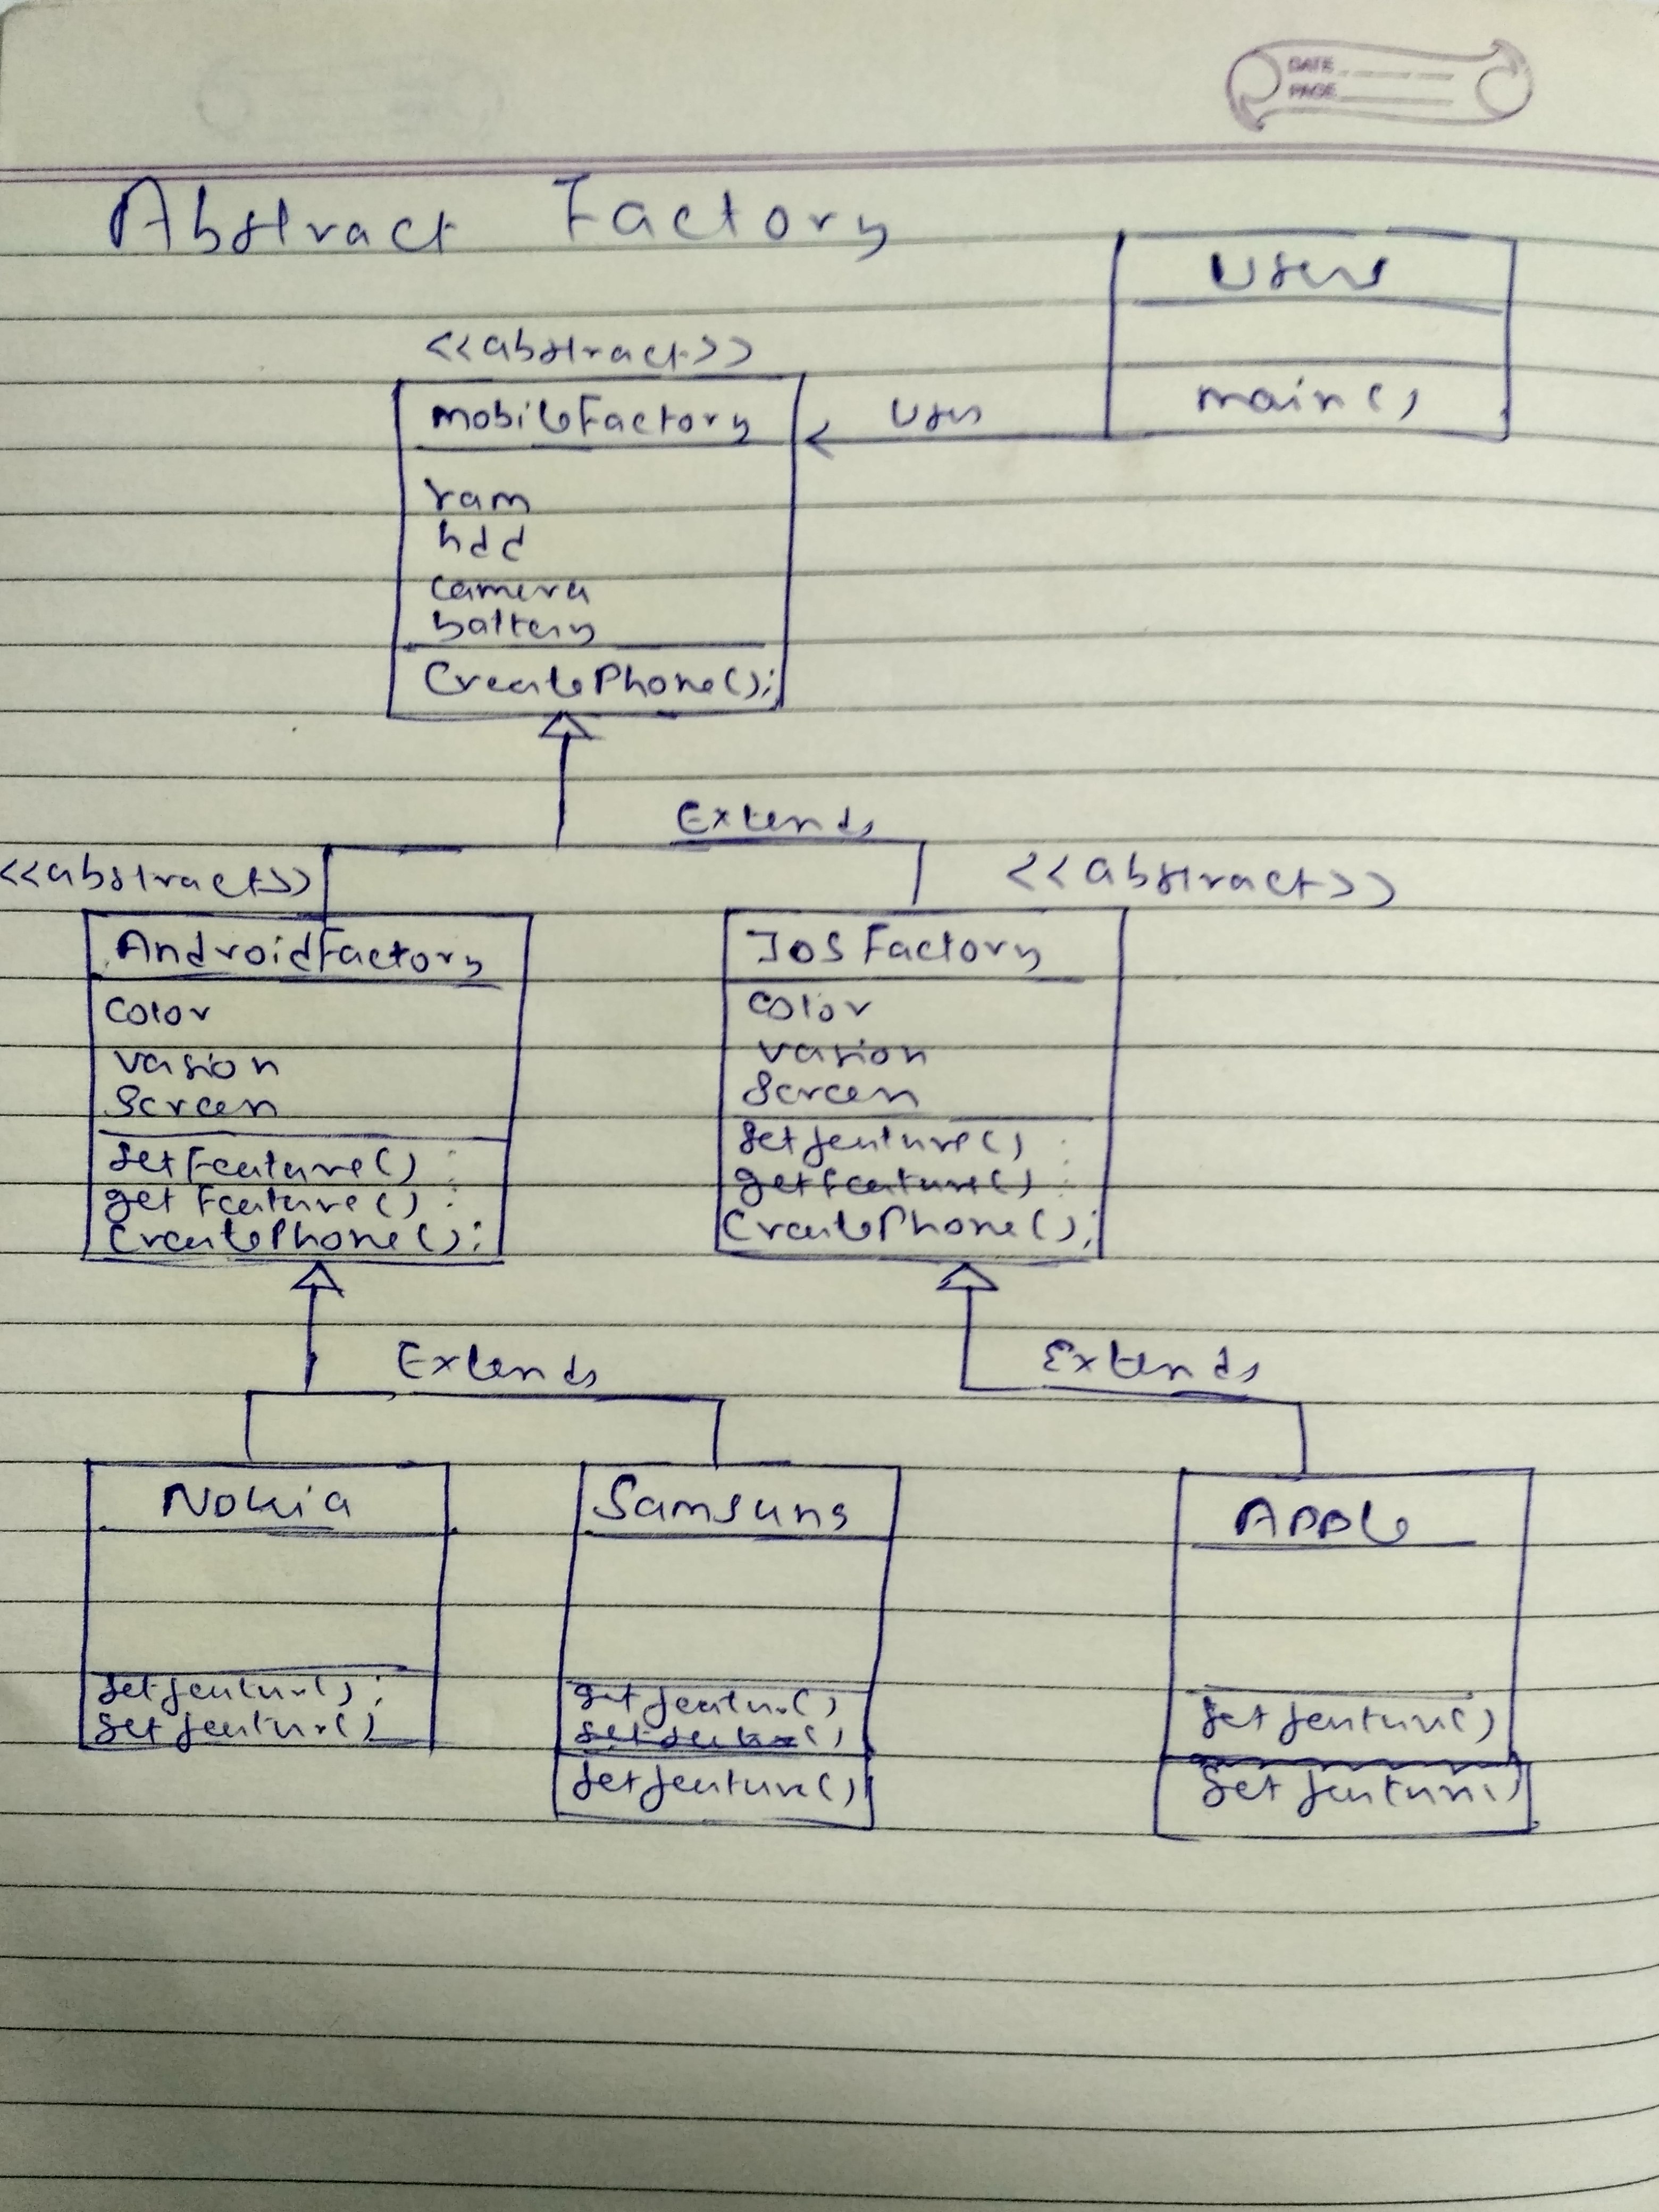 DATE
PAGE
Abstract Factory
Users
main()
<<abstract>>
mobileFactory
uses
ram
hdd
camera
battery
CreatePhone();
Extends
<<abstract>>
<<abstract>>
AndroidFactory
Color
vasion
Screen
setFeature() :
getFeature() :
CreatePhone();
IOSFactory
color
vasion
Screen
setfeature() :
getfeature() :
CreatePhone();
Extends
Extends
Nokia
getfeatur();
setfeatur()
Samsung
getfeatur()
setfeature()
APPLe
getfeature()